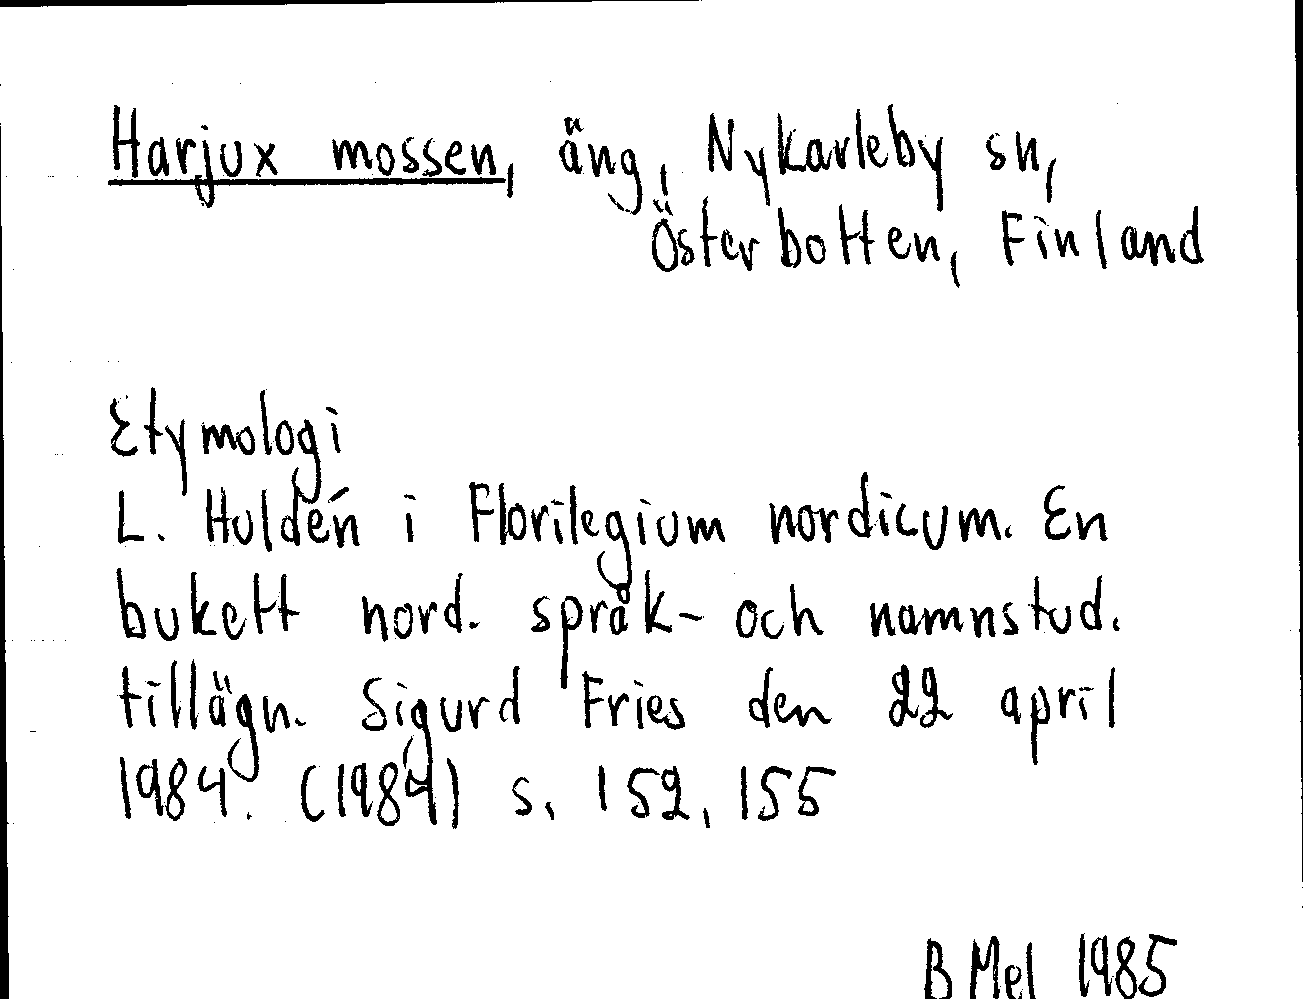 Harjux mossen, äng, Nykarleby sn,
Österbotten, Finland
Etymologi
L. Huldén i Florilegium nordicum. En
bukett nord. språk- och namnstud.
tillägn. Sigurd Fries den 22 april
1984. (1984) s. 152, 155
B Mel 1985